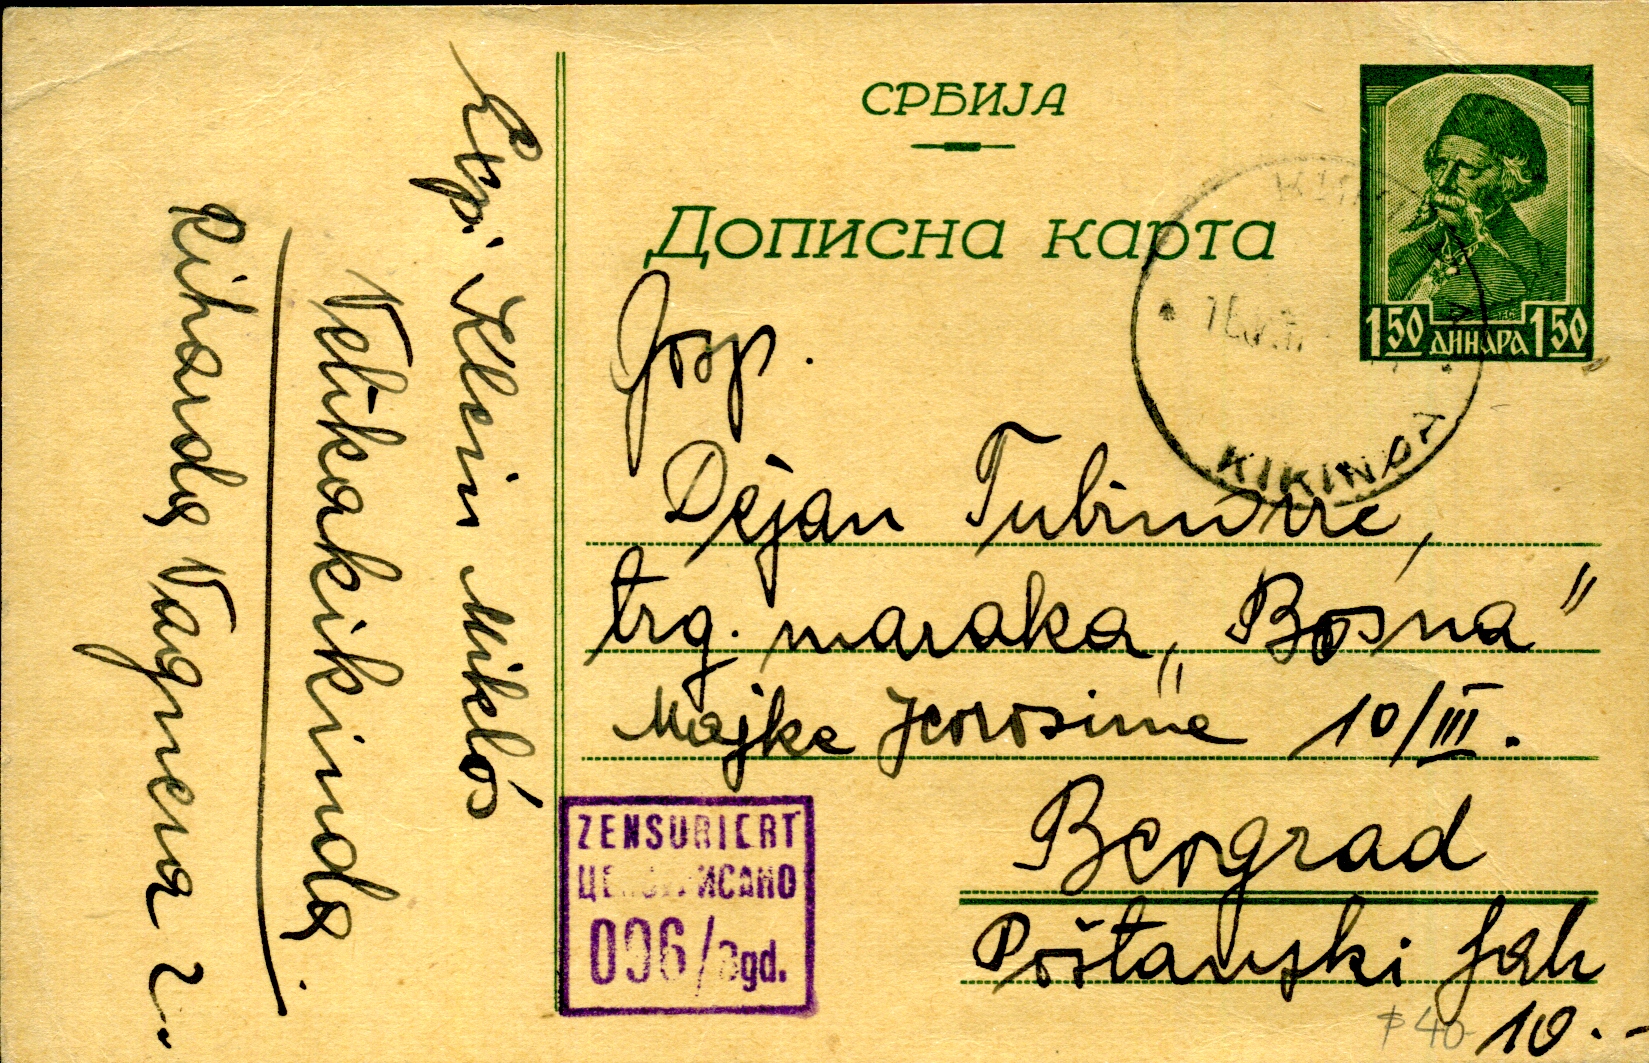 СРБИЈА
Дописна карта
1 50 ДИНАРА 1 50
KIKINDA
Gosp.
Dejan Tubinović,
trg. maraka „Bosna”
Majke Jevrosime 10/III.
Beograd
Poštanski fah
10.-
40
ZENSURIERT
ЦЕНЗУРИСАНО
096/Bgd.
Exp. Klein Miklós
Velikakikinda
Riharda Vagnera 2